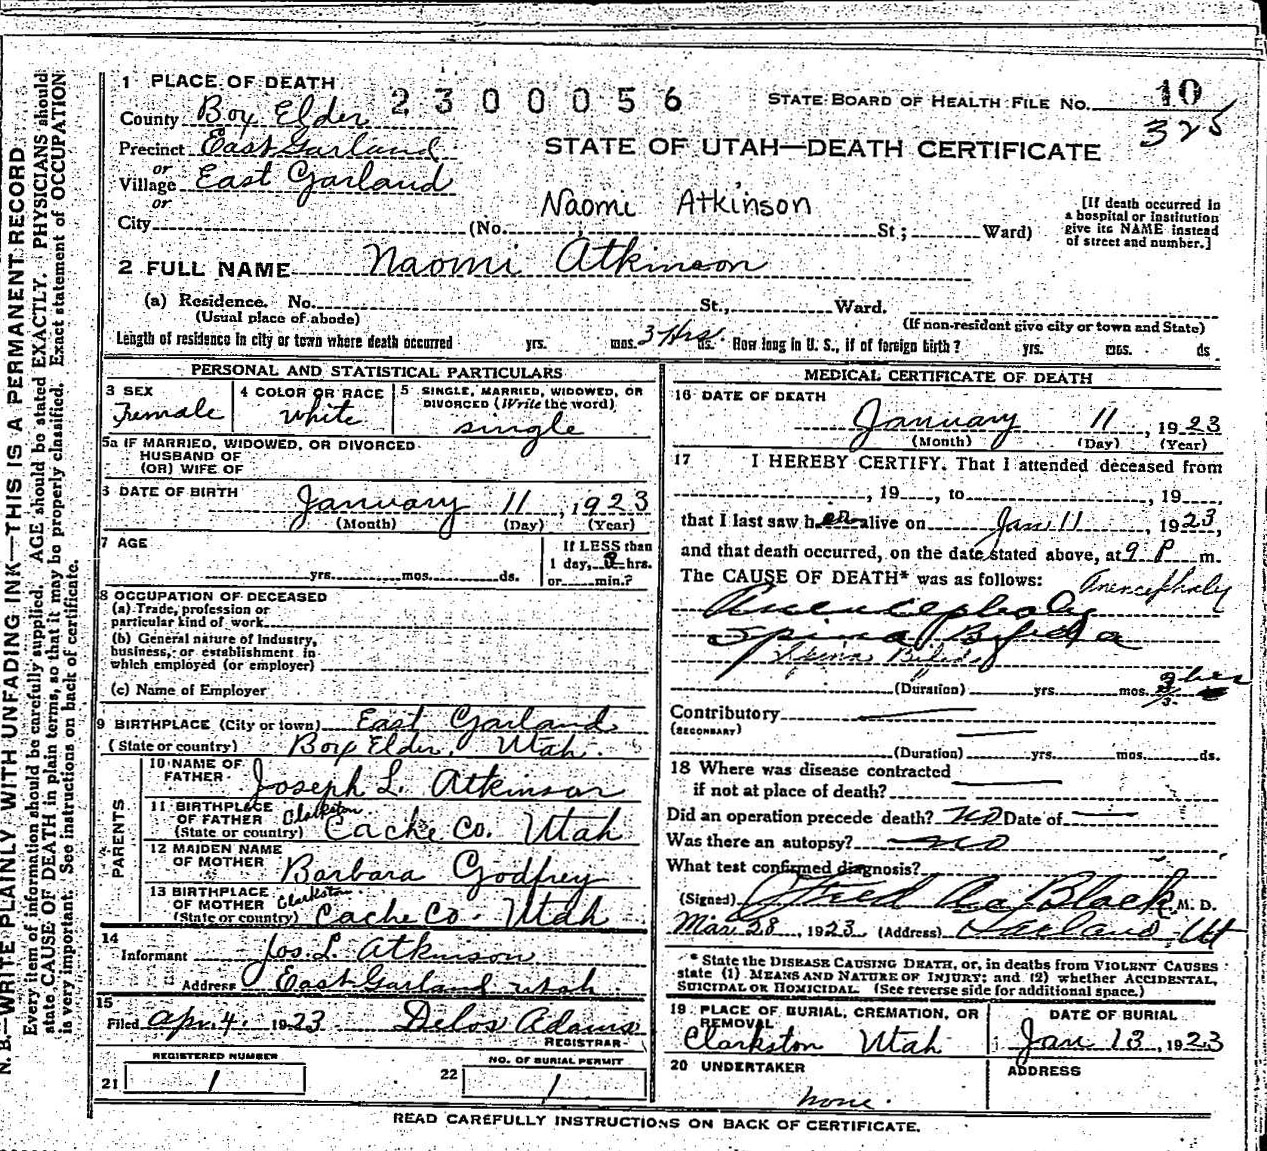 N. B.—WRITE PLAINLY WITH UNFADING INK—THIS IS A PERMANENT RECORD
Every item of information should be carefully supplied. AGE should be stated EXACTLY. PHYSICIANS should
state CAUSE OF DEATH in plain terms, so that it may be properly classified. Exact statement of OCCUPATION
is very important. See instructions on back of certificate.
1 PLACE OF DEATH
2300056
STATE BOARD OF HEALTH FILE NO. 10
325
County Box Elder
Precinct East Garland
or
Village East Garland
or
STATE OF UTAH—DEATH CERTIFICATE
Naomi Atkinson
City (No. St.; Ward)
[If death occurred in
a hospital or institution
give its NAME instead
of street and number.]
2 FULL NAME Naomi Atkinson
(a) Residence. No. St., Ward.
(Usual place of abode)
(If non-resident give city or town and State)
Length of residence in city or town where death occurred yrs. mos. 3 Hrs. ds. How long in U. S., if of foreign birth? yrs. mos. ds
PERSONAL AND STATISTICAL PARTICULARS
3 SEX
Female
4 COLOR OR RACE
White
5 SINGLE, MARRIED, WIDOWED, OR
DIVORCED (Write the word)
single
5a IF MARRIED, WIDOWED, OR DIVORCED
HUSBAND OF
(OR) WIFE OF
6 DATE OF BIRTH
January 11, 1923
(Month) (Day) (Year)
7 AGE
yrs. mos. ds.
If LESS than
1 day, 3 hrs.
or min.?
8 OCCUPATION OF DECEASED
(a) Trade, profession or
particular kind of work
(b) General nature of Industry,
business, or establishment in
which employed (or employer)
(c) Name of Employer
9 BIRTHPLACE (City or town) East Garland
(State or country) Box Elder, Utah
PARENTS
10 NAME OF
FATHER Joseph L. Atkinson
11 BIRTHPLACE
OF FATHER Clarkston
(State or country) Cache Co. Utah
12 MAIDEN NAME
OF MOTHER Barbara Godfrey
13 BIRTHPLACE
OF MOTHER Clarkston
(State or country) Cache Co. Utah
14
Informant Jos. L. Atkinson
Address East Garland Utah
15
Filed Apr. 4, 1923 Delos Adams
REGISTRAR
REGISTERED NUMBER
21 1
NO. OF BURIAL PERMIT
22 1
MEDICAL CERTIFICATE OF DEATH
16 DATE OF DEATH
January 11, 1923
(Month) (Day) (Year)
17 I HEREBY CERTIFY, That I attended deceased from
, 19 , to , 19
that I last saw her alive on Jan 11, 1923,
and that death occurred, on the date stated above, at 9 P m.
The CAUSE OF DEATH* was as follows: Anencephaly
Anencephaly
Spina Bifida
Spina Bifida
(Duration) yrs. mos. 3 hrs
Contributory
(SECONDARY)
(Duration) yrs. mos. ds.
18 Where was disease contracted
if not at place of death?
Did an operation precede death? NO Date of
Was there an autopsy? NO
What test confirmed diagnosis?
(Signed) Black, M. D.
Mar 28, 1923 (Address) Garland, Ut
* State the DISEASE CAUSING DEATH, or, in deaths from VIOLENT CAUSES
state (1) MEANS AND NATURE OF INJURY; and (2) whether ACCIDENTAL,
SUICIDAL OR HOMICIDAL. (See reverse side for additional space.)
19 PLACE OF BURIAL, CREMATION, OR
REMOVAL
Clarkston Utah
DATE OF BURIAL
Jan 13, 1923
20 UNDERTAKER
none.
ADDRESS
READ CAREFULLY INSTRUCTIONS ON BACK OF CERTIFICATE.